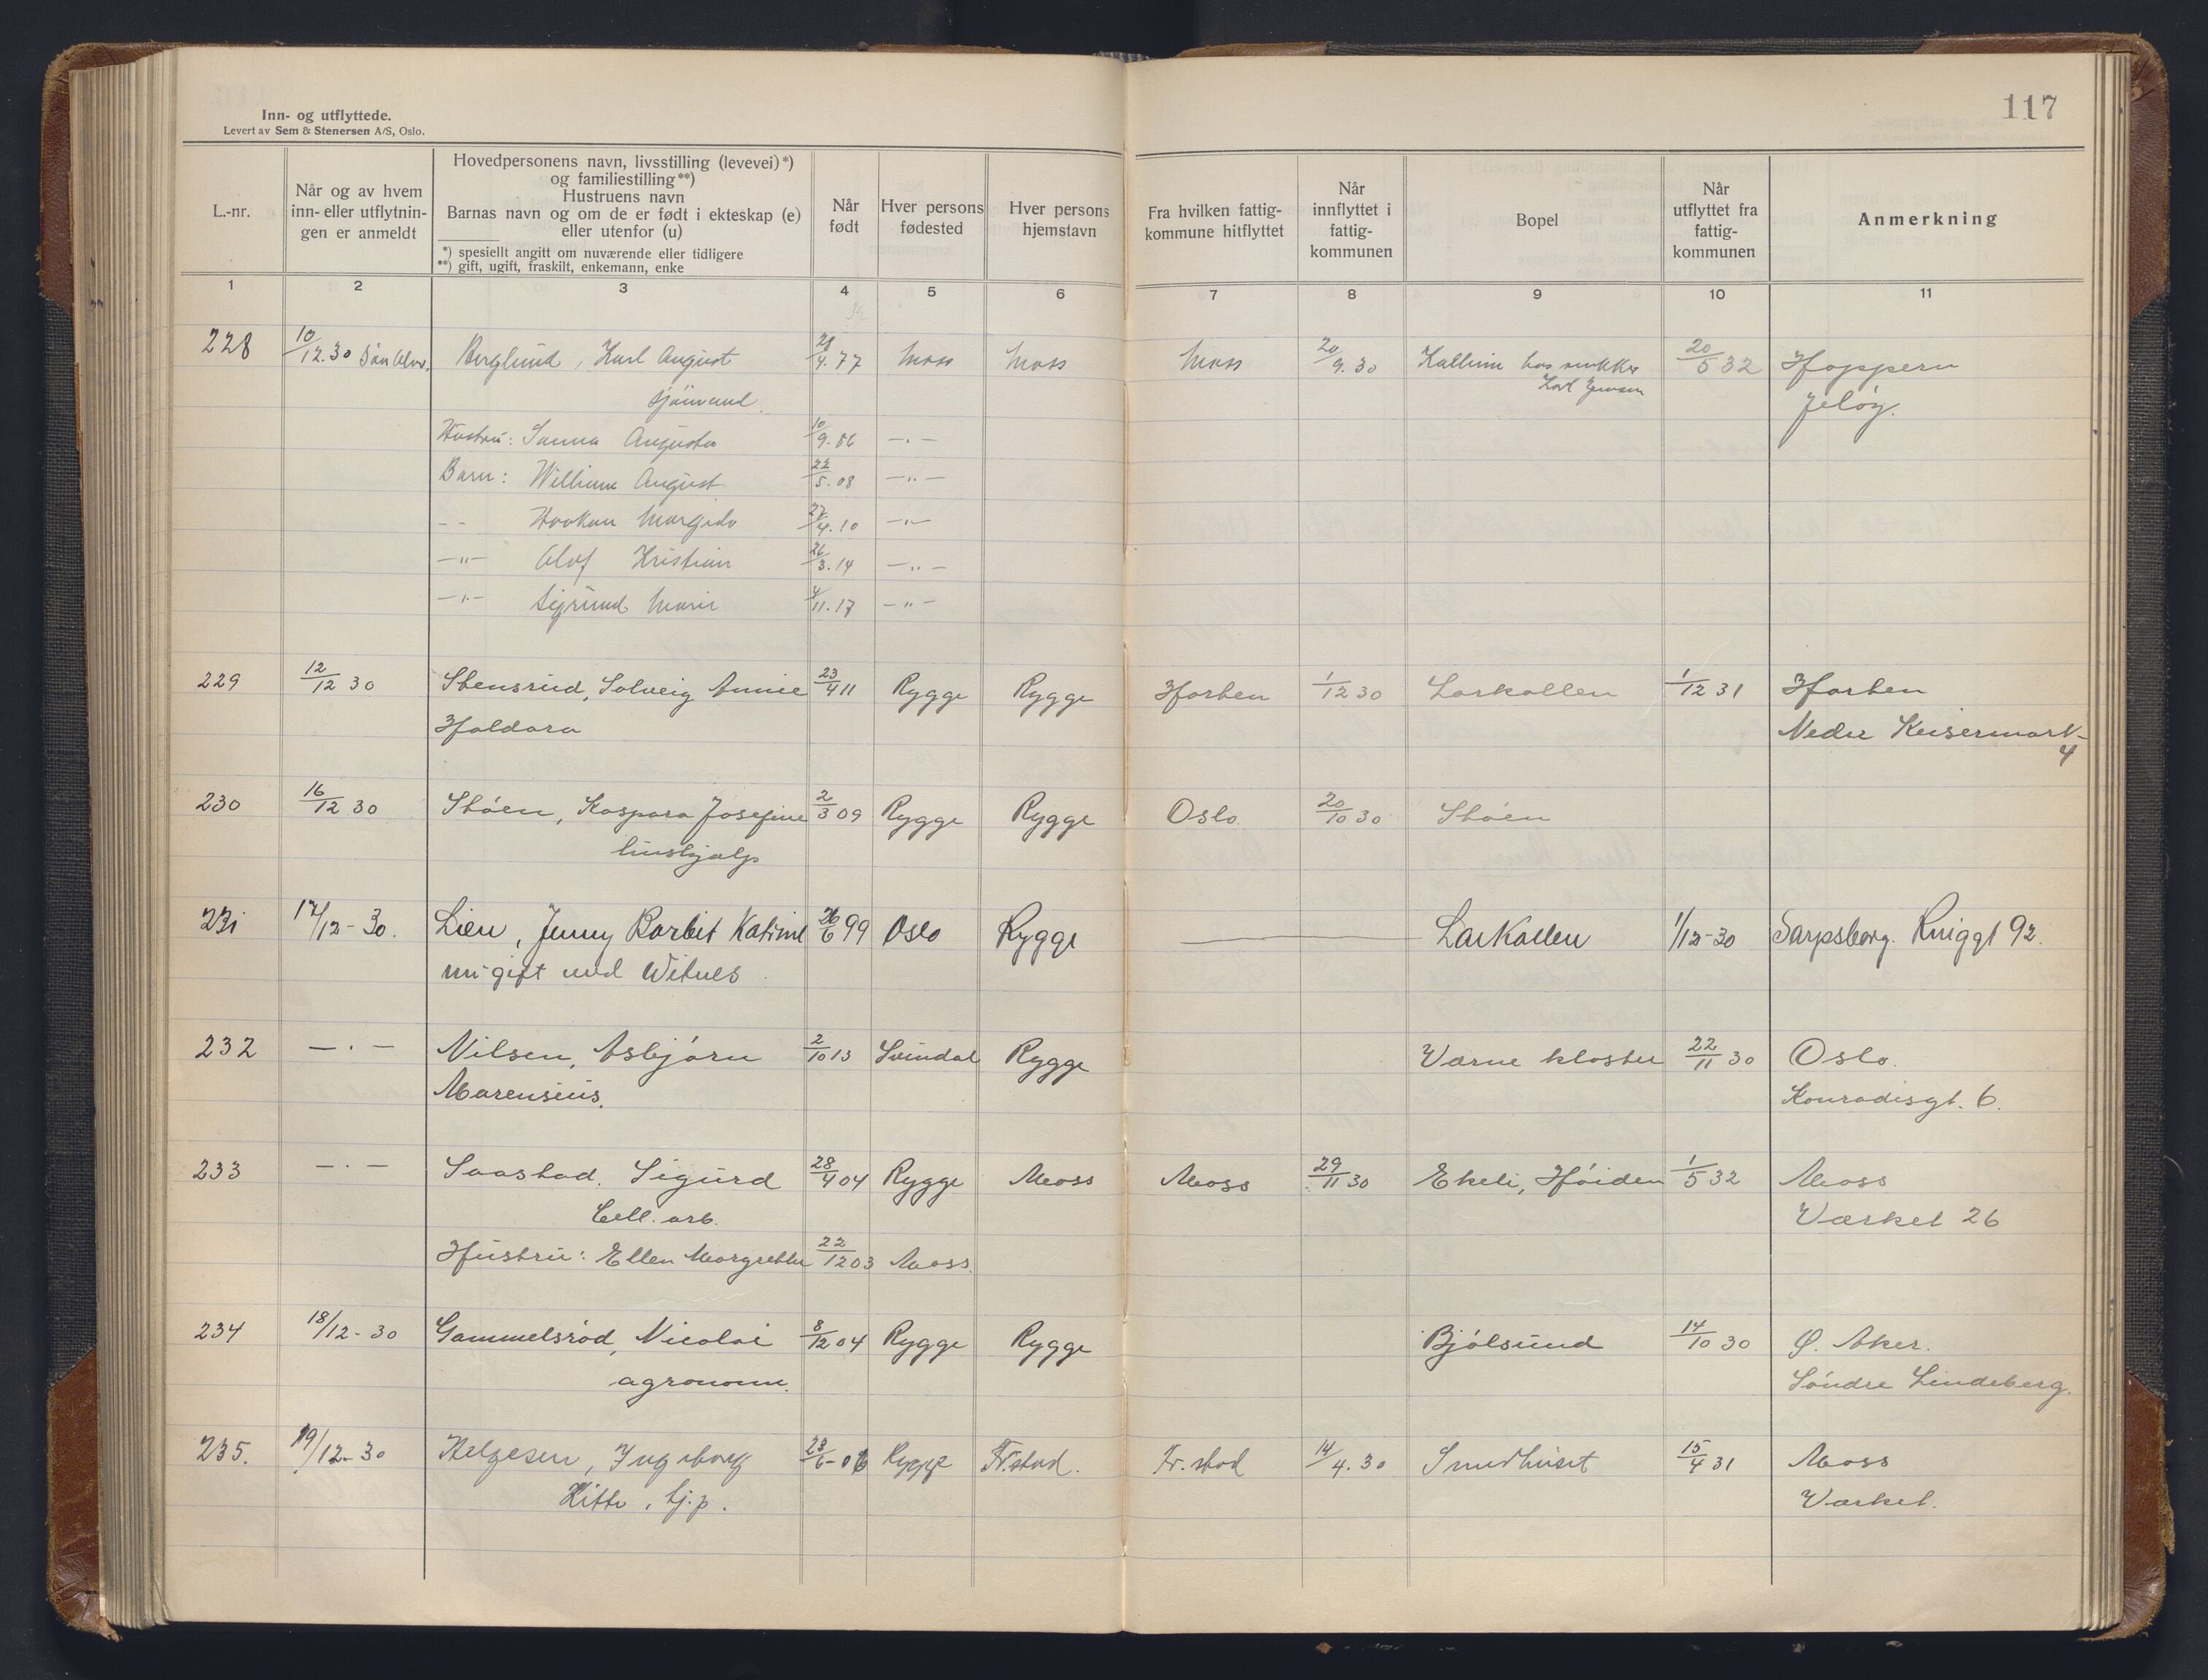 117
Inn- og utflyttede.
Levert av Sem & Stenersen A/S, Oslo.
L.-nr.
Når og av hvem inn- eller utflytnin- gen er anmeldt
Hovedpersonens navn, livsstilling (levevei) *)
og familiestilling **)
Hustruens navn
Barnas navn og om de er født i ekteskap (e)
eller utenfor (u)
*) spesielt angitt om nuværende eller tidligere
**) gift, ugift, fraskilt, enkemann, enke
Når født
Hver persons fødested
Hver persons hjemstavn
Fra hvilken fattig- kommune hitflyttet
Når innflyttet i fattig- kommunen
Bopel
Når utflyttet fra fattig- kommunen
Anmerkning
1 2 3 4 5 6 7 8 9 10 11
228 10/12.30 Berglund, Karl August 28/4.77 Moss Moss Moss 20/9.30 Kallum hos snekker 20/5 32 Hoppern
Sjømand Karl Jensen Jeløy.
Hustru: Sanna Augusta 10/9.86 —.—
Barn: William August 22/5.08 —"—
-- Haakon Margido 27/4.10 —"—
—"— Olof Kristian 26/3.14 —"—
—"— Sigrund Marie 4/11.17 —"—
229 12/12 30 Stensrud, Solveig Annie 23/4 11 Rygge Rygge Horten 1/12 30 Larkollen 1/12 31 Horten
Haldora Nedre Keisermark-
4
230 16/12 30 Støen, Kaspara Josefine 2/3 09 Rygge Rygge Oslo 20/10 30 Støen
hushjalp
231 17/12-30. Lien, Jenny Borbit Katrine 26/6 99 Oslo Rygge — Larkollen 1/12-30 Sarpsborg. Kniggt 92.
nu gift med Witnes
232 —.— Nilsen, Asbjørn 2/10 13 Svindal Rygge Varne kloster 22/11 30 Oslo.
Marensius. Konradisgt. 6.
233 —.— Saastad. Sigurd 28/4 04 Rygge Moss Moss 29/11 30 Ekeli, Høiden 1/5 32 Moss
Cell. arb. Værket 26
Hustru: Ellen Margrethe 22/12 03 Moss.
234 18/12-30 Gammelsrød, Nicolai 8/12 04 Rygge Rygge Bjølsund 14/10 30 Ø. Aker.
agronom. Søndre Lindeberg.
235. 19/12-30 Helgesen, Ingeborg 23/6-06 Rygge Fr.stad. Fr.stad 14/4.30 Smedhuset 15/4 31 Moss
Kitty, tj.p. Værket.